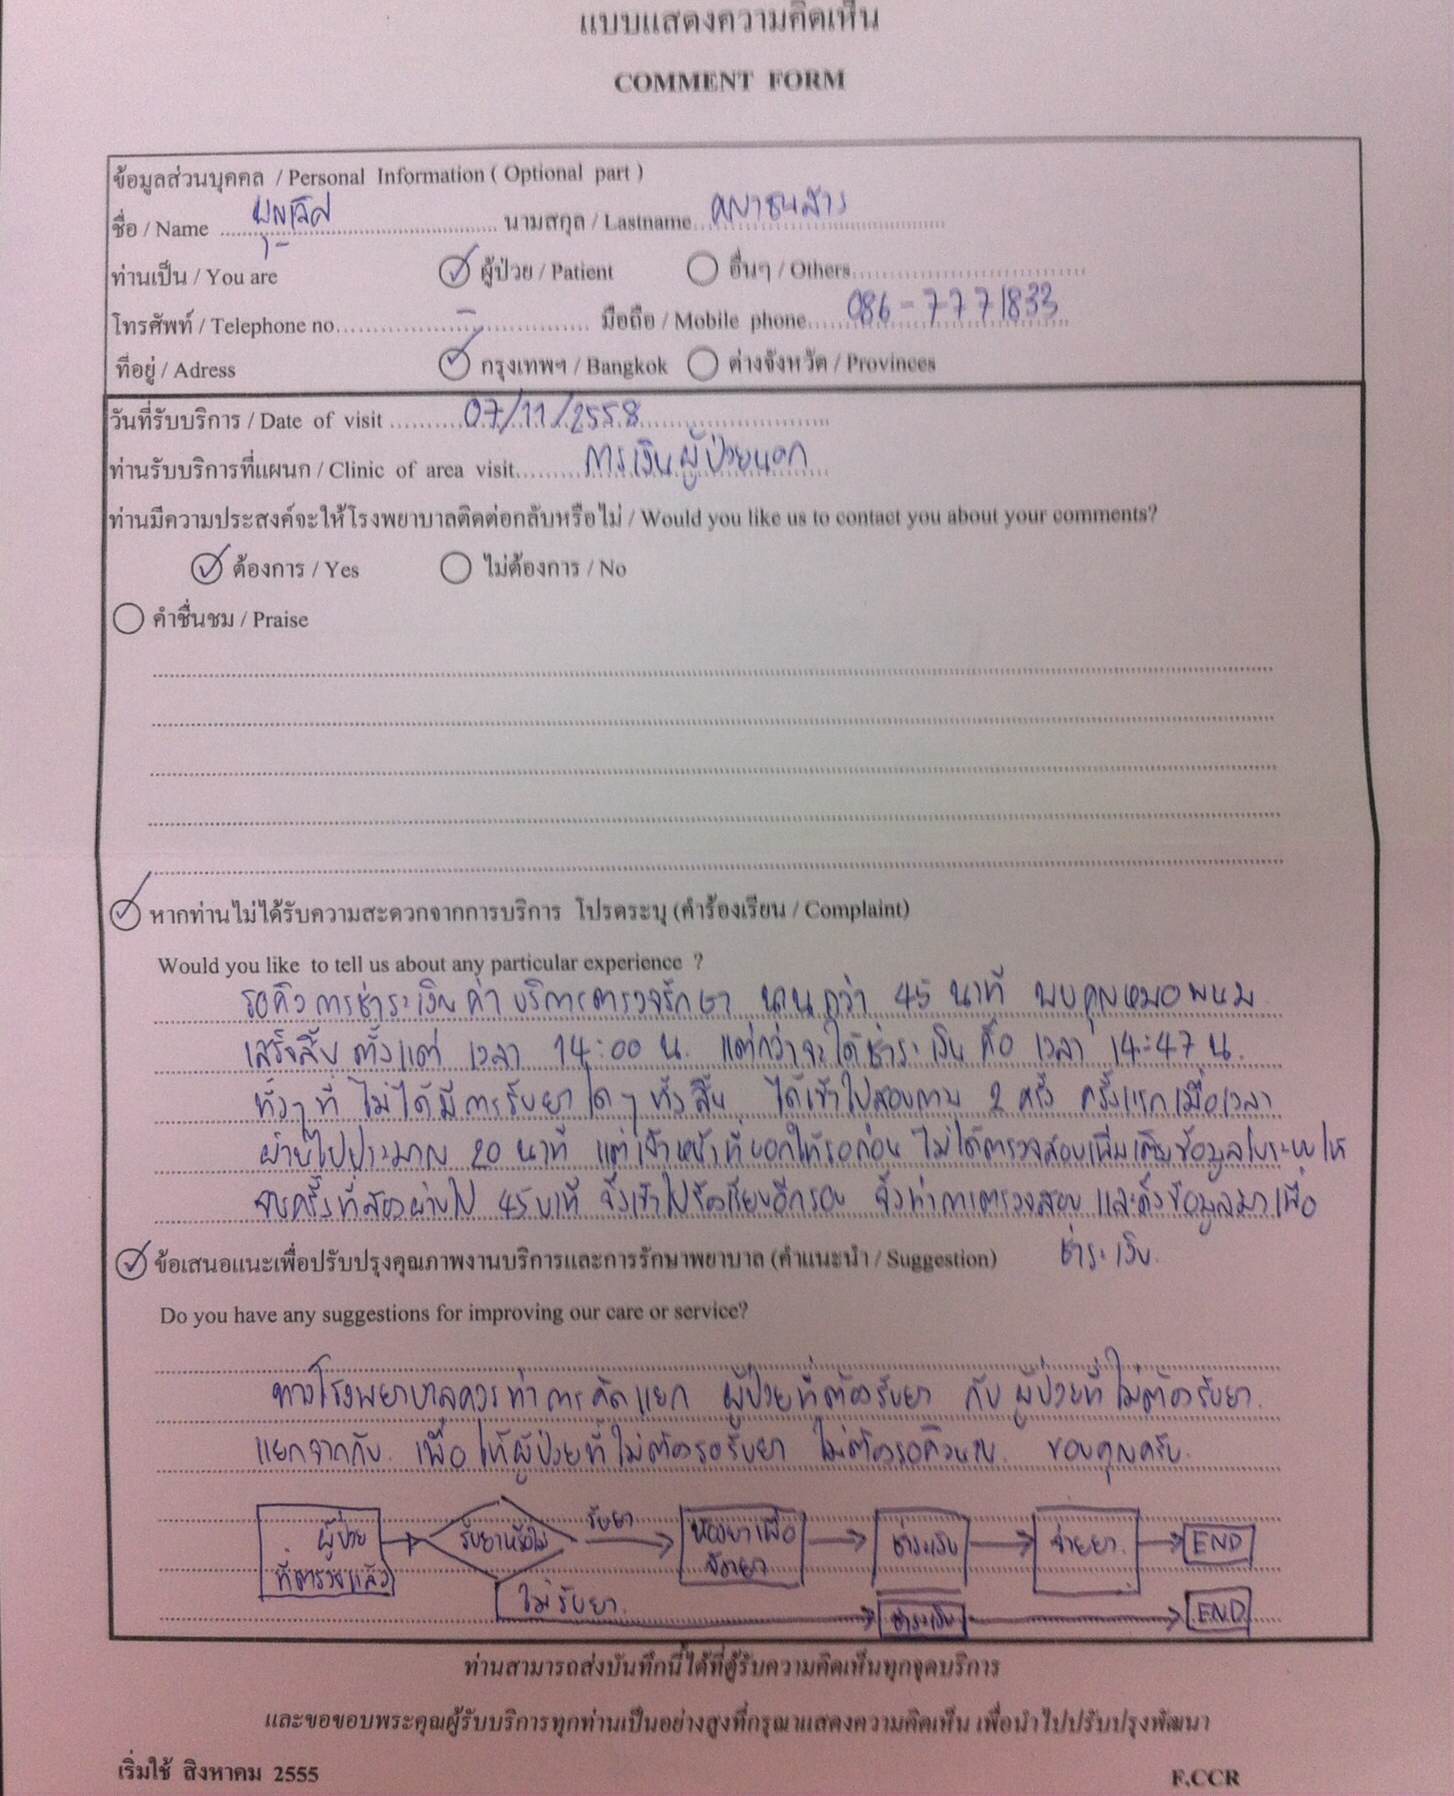 แบบแสดงความคิดเห็น
COMMENT FORM
ข้อมูลส่วนบุคคล / Personal Information ( Optional part )
ชื่อ / Name ........ นามสกุล / Lastname........
ท่านเป็น / You are ผู้ป่วย / Patient อื่นๆ / Others........
โทรศัพท์ / Telephone no........ - ........ มือถือ / Mobile phone..... 086-7771833
ที่อยู่ / Adress กรุงเทพฯ / Bangkok ต่างจังหวัด / Provinces
วันที่รับบริการ / Date of visit ........ 07/11/2558
ท่านรับบริการที่แผนก / Clinic of area visit........ การเงินผู้ป่วยนอก
ท่านมีความประสงค์จะให้โรงพยาบาลติดต่อกลับหรือไม่ / Would you like us to contact you about your comments?
ต้องการ / Yes ไม่ต้องการ / No
คำชื่นชม / Praise
หากท่านไม่ได้รับความสะดวกจากการบริการ โปรดระบุ (คำร้องเรียน / Complaint)
Would you like to tell us about any particular experience ?
รอคิวการชำระเงินค่าบริการตรวจรักษา นานกว่า 45 นาที พบคุณหมอ
เสร็จสิ้นตั้งแต่ เวลา 14:00 น. แต่กว่าจะได้ชำระเงิน คือ เวลา 14:47 น.
ทั้งๆ ที่ ไม่ได้มีการรับยาใดๆ ทั้งสิ้น ได้เข้าไปสอบถาม 2 ครั้ง ครั้งแรกเมื่อเวลา
ผ่านไปประมาณ 20 นาที แต่เจ้าหน้าที่บอกให้รอก่อน ไม่ได้ตรวจสอบเพิ่มเติมข้อมูลในระบบให้
จนครั้งที่สองผ่านไป 45 นาที จึงเข้าไปร้องเรียนอีกรอบ จึงทำการตรวจสอบ และดึงข้อมูลมาเพื่อ
ชำระเงิน.
ข้อเสนอแนะเพื่อปรับปรุงคุณภาพงานบริการและการรักษาพยาบาล (คำแนะนำ / Suggestion)
Do you have any suggestions for improving our care or service?
ทางโรงพยาบาลควรทำการคัดแยก ผู้ป่วยที่ต้องรับยา กับ ผู้ป่วยที่ไม่ต้องรับยา.
แยกจากกัน. เพื่อให้ผู้ป่วยที่ไม่ต้องรอรับยา ไม่ต้องรอคิวนาน. ขอบคุณครับ.
ผู้ป่วย ที่ตรวจแล้ว รับยาหรือไม่ รับยา ห้องยาเพื่อ จัดยา ชำระเงิน จ่ายยา. END
ไม่รับยา. ชำระเงิน END
ท่านสามารถส่งบันทึกนี้ได้ที่ตู้รับความคิดเห็นทุกจุดบริการ
และขอขอบพระคุณผู้รับบริการทุกท่านเป็นอย่างสูงที่กรุณาแสดงความคิดเห็น เพื่อนำไปปรับปรุงพัฒนา
เริ่มใช้ สิงหาคม 2555 F.CCR